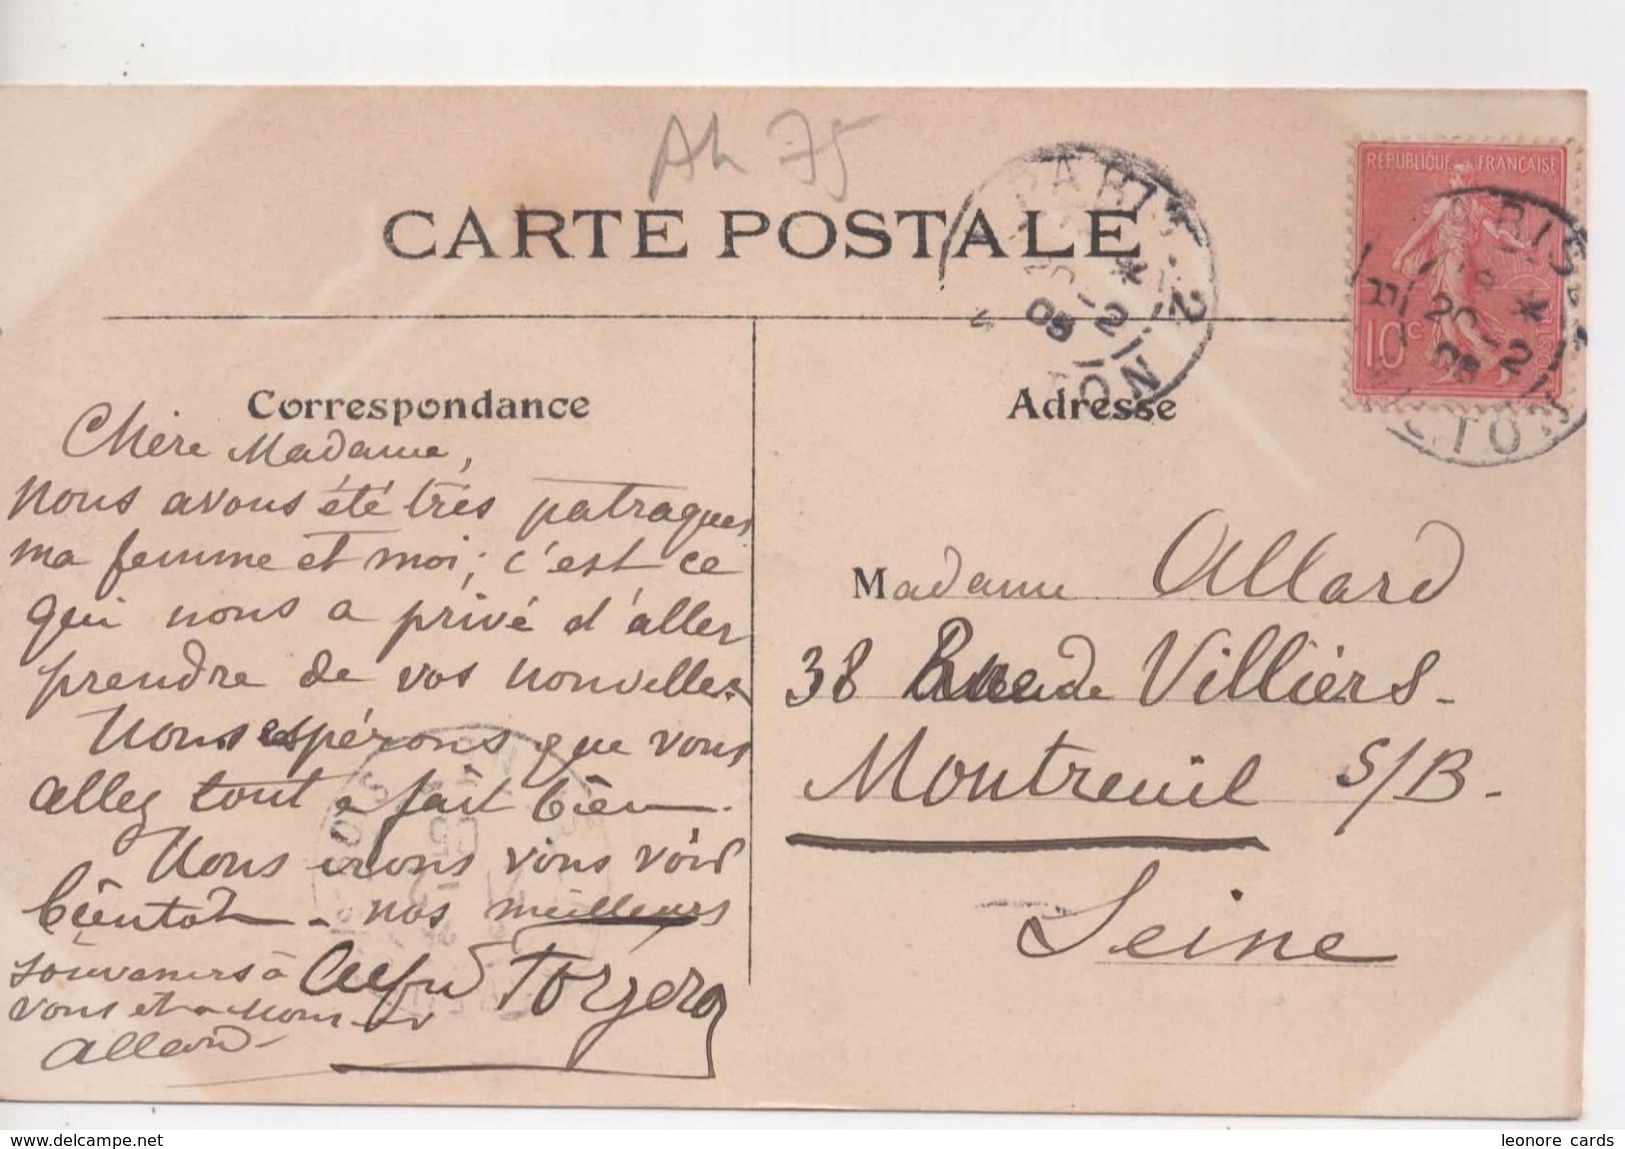 Ah 75
CARTE POSTALE
REPUBLIQUE FRANÇAISE
10c
POSTES
PARIS
20 - 2
05
PARIS
20 - 2
05
Correspondance
Adresse
Chère Madame,
Nous avons été très patraques
ma femme et moi; c'est ce
qui nous a privé d'aller
prendre de vos nouvelles.
Nous espérons que vous
allez tout à fait bien.
Nous irons vous voir
bientôt - nos meilleurs
souvenirs à
vous et à Monsieur
Allard -
Madame Allard
38 Rue de Villiers -
Montreuil S/B -
Seine
www.delcampe.net
leonore cards